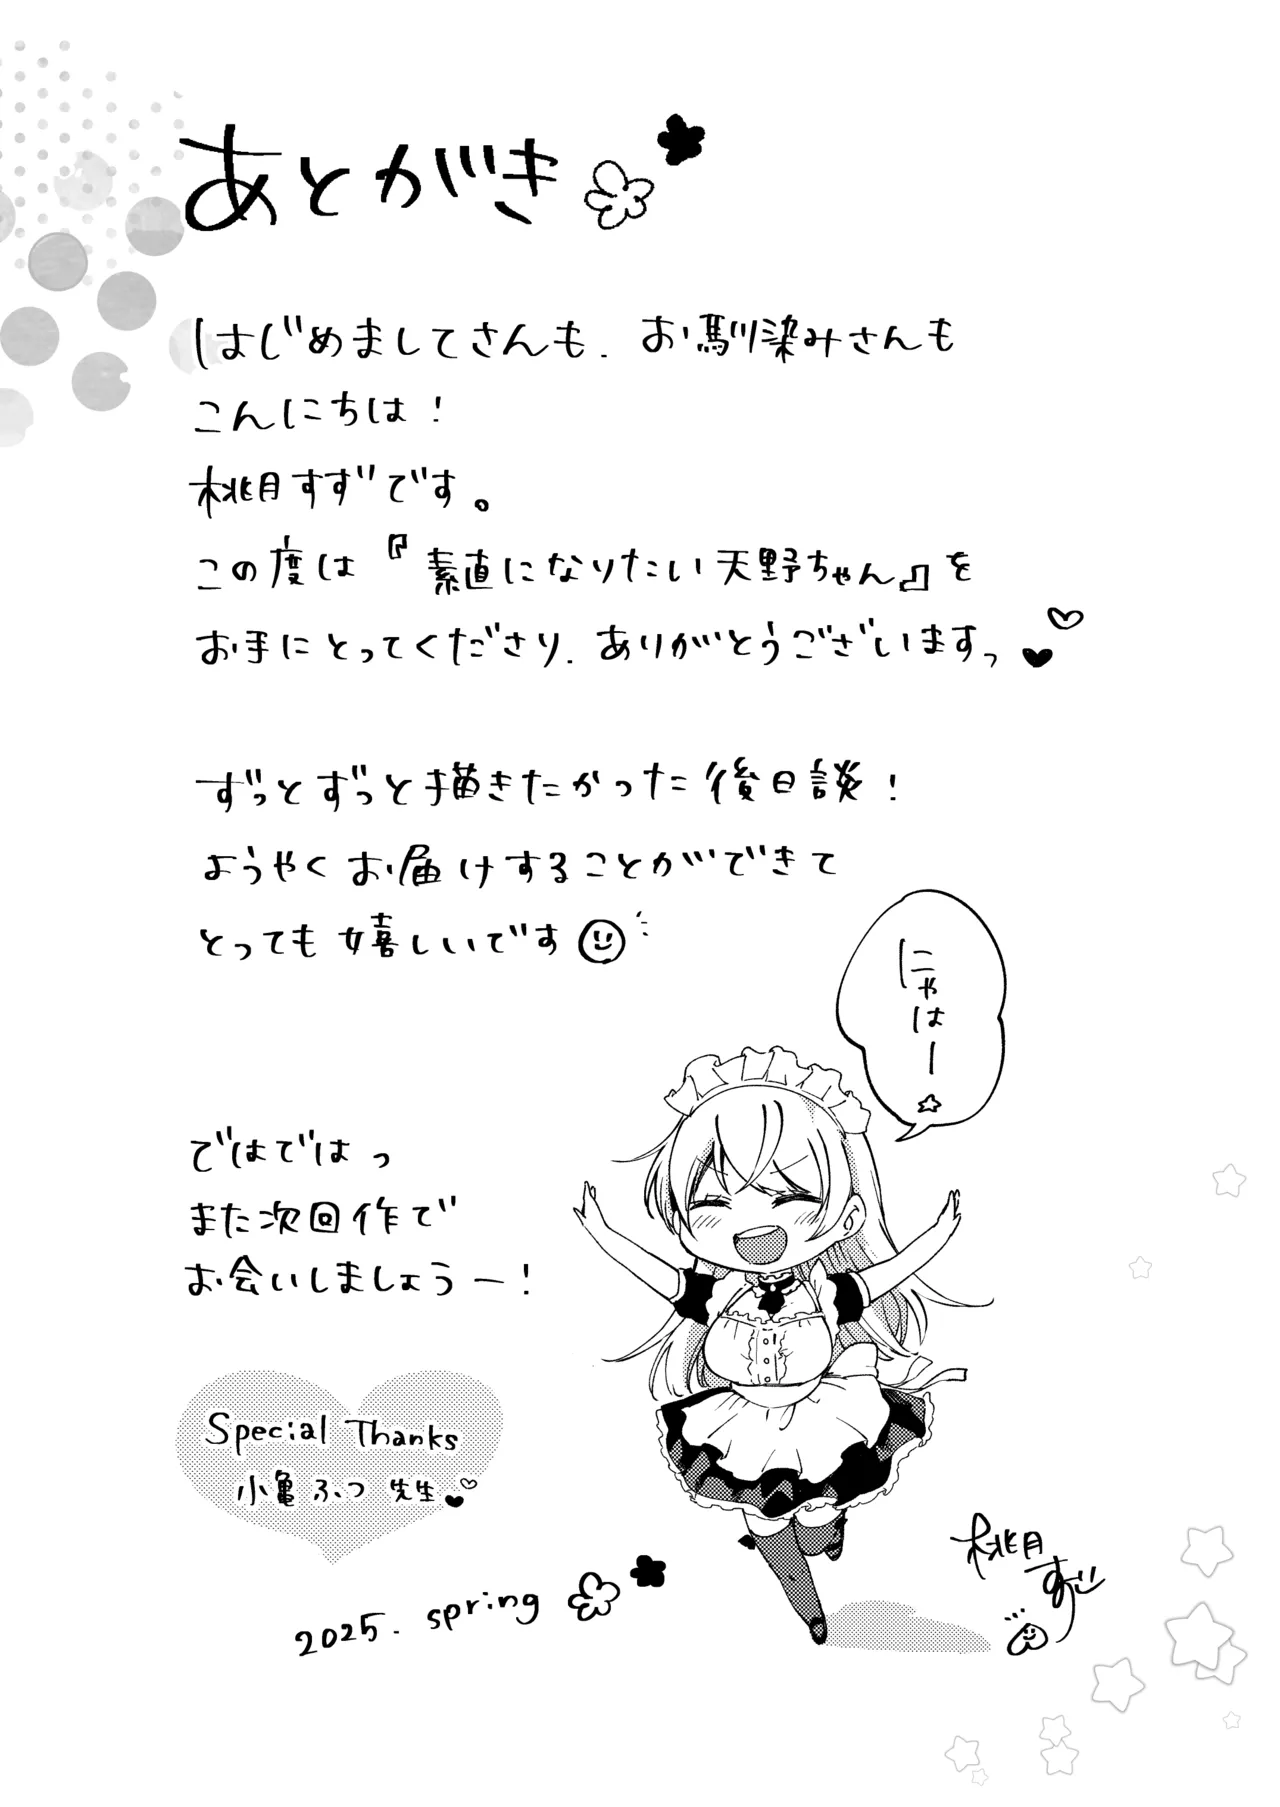 あとがき
はじめましてさんも、お馴染みさんも
こんにちは！
桃月すずです。
この度は『素直になりたい天野ちゃん』を
お手にとってくださり、ありがとうございますっ
ずっとずっと描きたかった後日談！
ようやくお届けすることができて
とっても嬉しいです
にゃはー☆
ではではっ
また次回作で
お会いしましょうー！
Special Thanks
小亀ふつ 先生
2025. spring
桃月
すず